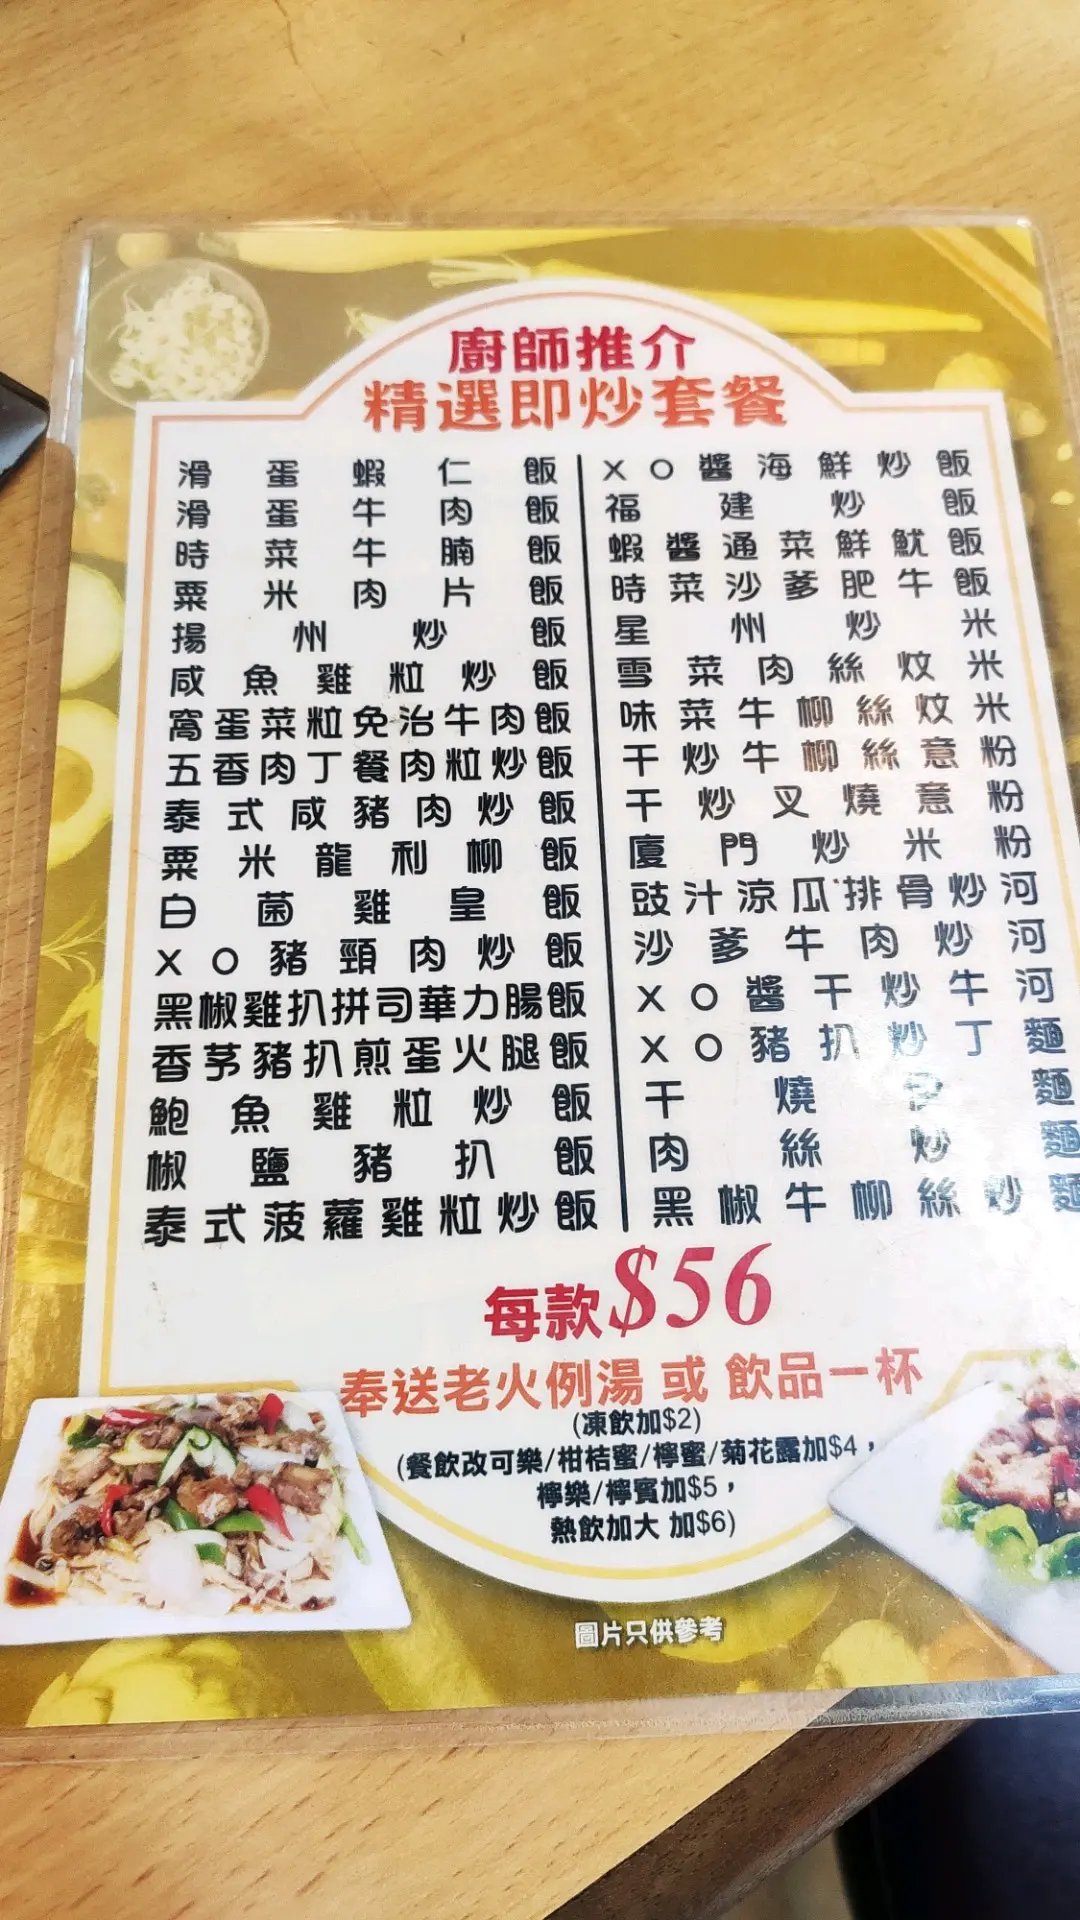 廚師推介
精選即炒套餐
滑蛋蝦仁飯
滑蛋牛肉飯
時菜牛腩飯
粟米肉片飯
揚州炒飯
咸魚雞粒炒飯
窩蛋菜粒免治牛肉飯
五香肉丁餐肉粒炒飯
泰式咸豬肉炒飯
粟米龍利柳飯
白菌雞皇飯
XO豬頸肉炒飯
黑椒雞扒拼司華力腸飯
香茅豬扒煎蛋火腿飯
鮑魚雞粒炒飯
椒鹽豬扒飯
泰式菠蘿雞粒炒飯
XO醬海鮮炒飯
福建炒飯
蝦醬通菜鮮魷飯
時菜沙爹肥牛飯
星州炒米
雪菜肉絲炆米
味菜牛柳絲炆米
干炒牛柳絲意粉
干炒叉燒意粉
廈門炒米粉
豉汁涼瓜排骨炒河
沙爹牛肉炒河
XO醬干炒牛河
XO豬扒炒丁麵
干燒伊麵
肉絲炒麵
黑椒牛柳絲炒麵
每款$56
奉送老火例湯 或 飲品一杯
(凍飲加$2)
(餐飲改可樂/柑桔蜜/檸蜜/菊花露加$4，
檸樂/檸賓加$5，
熱飲加大 加$6)
圖片只供參考